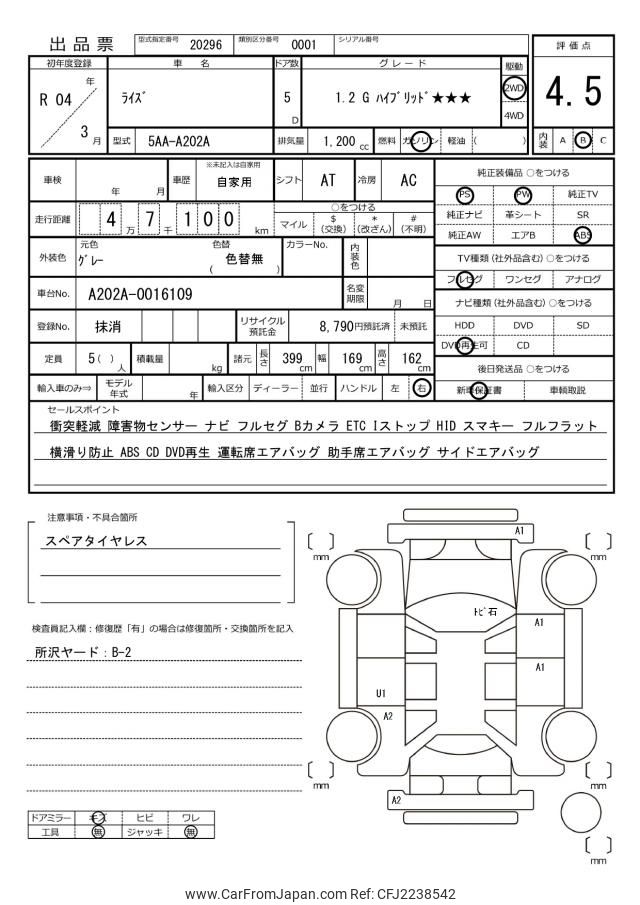 出品票 型式指定番号 20296 類別区分番号 0001 シリアル番号
評価点
4.5
内装 A B C
初年度登録 車名 ドア数 グレード 駆動
R 04 年 3 月
ﾗｲｽﾞ 5 D 1.2 G ﾊｲﾌﾞﾘｯﾄﾞ★★★ 2WD
4WD
型式 5AA-A202A 排気量 1,200 cc 燃料 ガソリン 軽油 ( )
車検 年 月 車歴 ※未記入は自家用 自家用 シフト AT 冷房 AC
走行距離 4 万 7 千 1 0 0 km
○をつける
マイル $(交換) *(改ざん) #(不明)
外装色 元色 ｸﾞﾚｰ 色替 ( 色替無 ) カラーNo. 内装色
車台No. A202A-0016109 名変期限 月 日
登録No. 抹消 リサイクル預託金 8,790円預託済 未預託
定員 5( ) 人 積載量 kg 諸元 長さ 399 cm 幅 169 cm 高さ 162 cm
輸入車のみ⇒ モデル年式 年 輸入区分 ディーラー・並行 ハンドル 左 右
純正装備品 ○をつける
PS PW 純正TV
純正ナビ 革シート SR
純正AW エアB ABS
TV種類 (社外品含む) ○をつける
フルセグ ワンセグ アナログ
ナビ種類 (社外品含む) ○をつける
HDD DVD SD
DVD再生可 CD
後日発送品 ○をつける
新車保証書 車輌取説
セールスポイント
衝突軽減 障害物センサー ナビ フルセグ Bカメラ ETC Iストップ HID スマキー フルフラット
横滑り防止 ABS CD DVD再生 運転席エアバッグ 助手席エアバッグ サイドエアバッグ
注意事項・不具合箇所
スペアタイヤレス
検査員記入欄：修復歴「有」の場合は修復箇所・交換箇所を記入
所沢ヤード：B-2
ドアミラー キズ ヒビ ワレ
工具 無 ジャッキ 無
A1
mm
mm
ﾄﾋﾞ石
A1
A1
U1
A2
mm
mm
A2
mm
www.CarFromJapan.com Ref: CFJ2238542